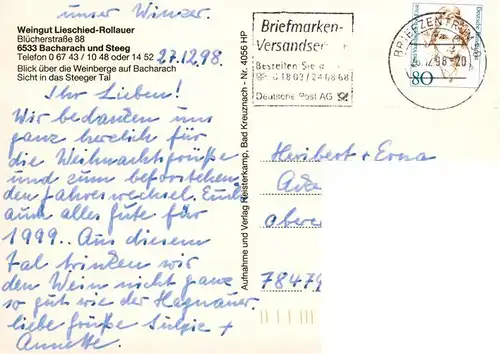 unser Winzer
Weingut Lieschied-Rollauer
Blücherstraße 88
6533 Bacharach und Steeg
Telefon 0 67 43 / 10 48 oder 14 52
27.12.98.
Blick über die Weinberge auf Bacharach
Sicht in das Steeger Tal
Ihr Lieben!
Wir bedanken uns
ganz herzlich für
die Weihnachtsgrüße
und zum beforstehen
den Jahreswechsel. Euch
auch alles gute für
1999.. Aus diesem
Tal trinken wir
den Wein nicht ganz
so gut wie der Hagnauer.
liebe grüße +
Annette.
Aufnahme und Verlag Reisterkamp, Bad Kreuznach - Nr. 4056 HP
Briefmarken-
Versandser
Bestellen Sie
0 18 03 / 24 68 68
Deutsche Post AG
BRIEFZENTRUM
.12.98-20
80
Heribert + Erna
78479